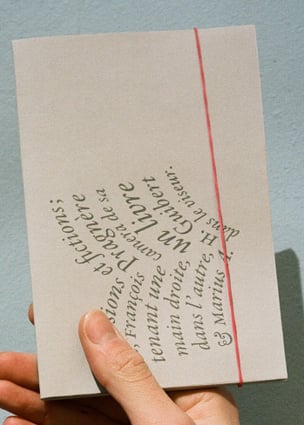 sions et fictions;
François Pragnère
tenant une caméra de sa
main droite, un livre
dans l'autre, H. Guibert
& Marius A. dans le viseur.